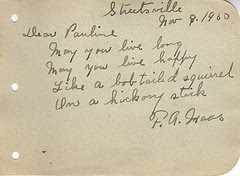 Streetsville
Nov 8, 1930
Dear Pauline
May you live long
May you live happy
Like a bobtail'd squirrel
On a hickory stick
P. A. Maas